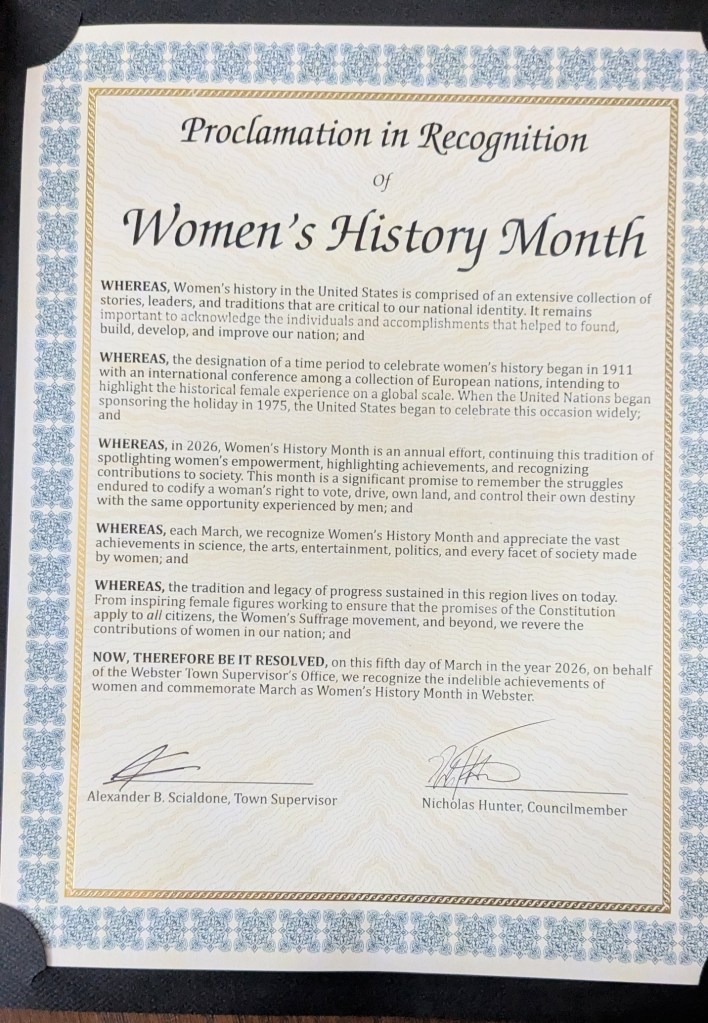 Proclamation in Recognition
Of
Women's History Month
WHEREAS, Women's history in the United States is comprised of an extensive collection of
stories, leaders, and traditions that are critical to our national identity. It remains
important to acknowledge the individuals and accomplishments that helped to found,
build, develop, and improve our nation; and
WHEREAS, the designation of a time period to celebrate women's history began in 1911
with an international conference among a collection of European nations, intending to
highlight the historical female experience on a global scale. When the United Nations began
sponsoring the holiday in 1975, the United States began to celebrate this occasion widely;
and
WHEREAS, in 2026, Women's History Month is an annual effort, continuing this tradition of
spotlighting women's empowerment, highlighting achievements, and recognizing
contributions to society. This month is a significant promise to remember the struggles
endured to codify a woman's right to vote, drive, own land, and control their own destiny
with the same opportunity experienced by men; and
WHEREAS, each March, we recognize Women's History Month and appreciate the vast
achievements in science, the arts, entertainment, politics, and every facet of society made
by women; and
WHEREAS, the tradition and legacy of progress sustained in this region lives on today.
From inspiring female figures working to ensure that the promises of the Constitution
apply to all citizens, the Women's Suffrage movement, and beyond, we revere the
contributions of women in our nation; and
NOW, THEREFORE BE IT RESOLVED, on this fifth day of March in the year 2026, on behalf
of the Webster Town Supervisor's Office, we recognize the indelible achievements of
women and commemorate March as Women's History Month in Webster.
Alexander B. Scialdone, Town Supervisor
Nicholas Hunter, Councilmember